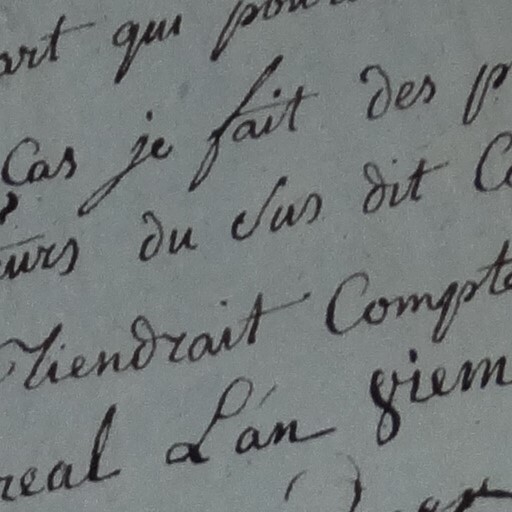 art qui pour
Cas je fait des p
urs du Sus dit C
Tiendrait Compte
real L'an 9iem